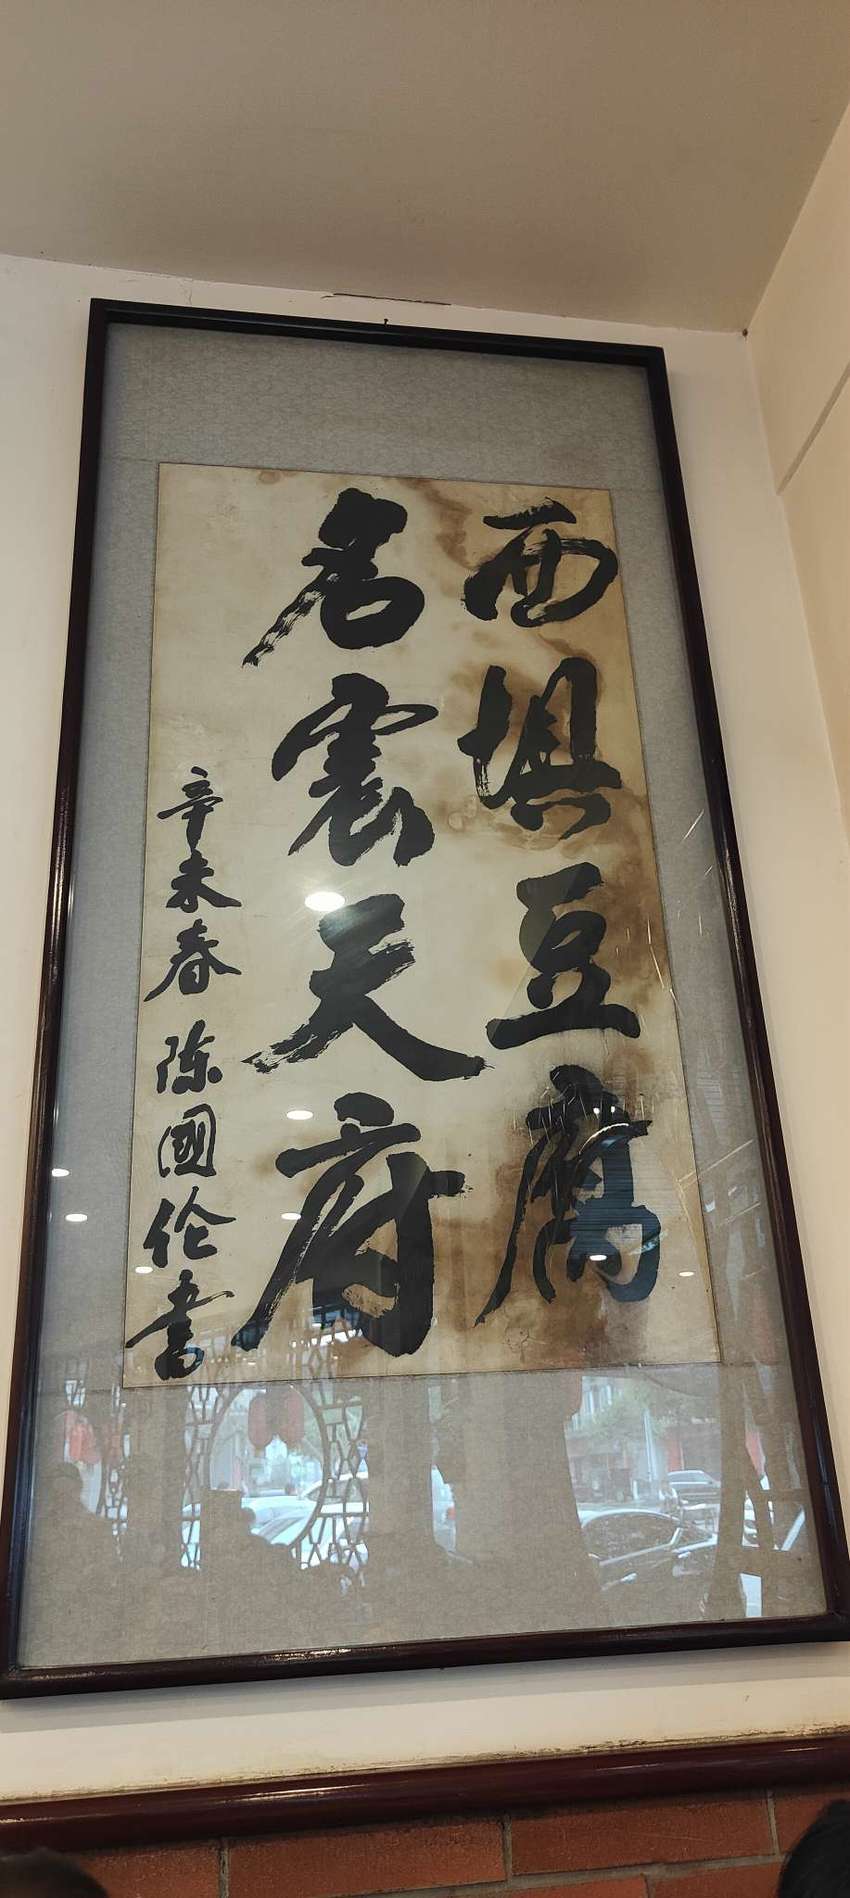 西垻豆腐
名震天府
辛未春 陈國伦書